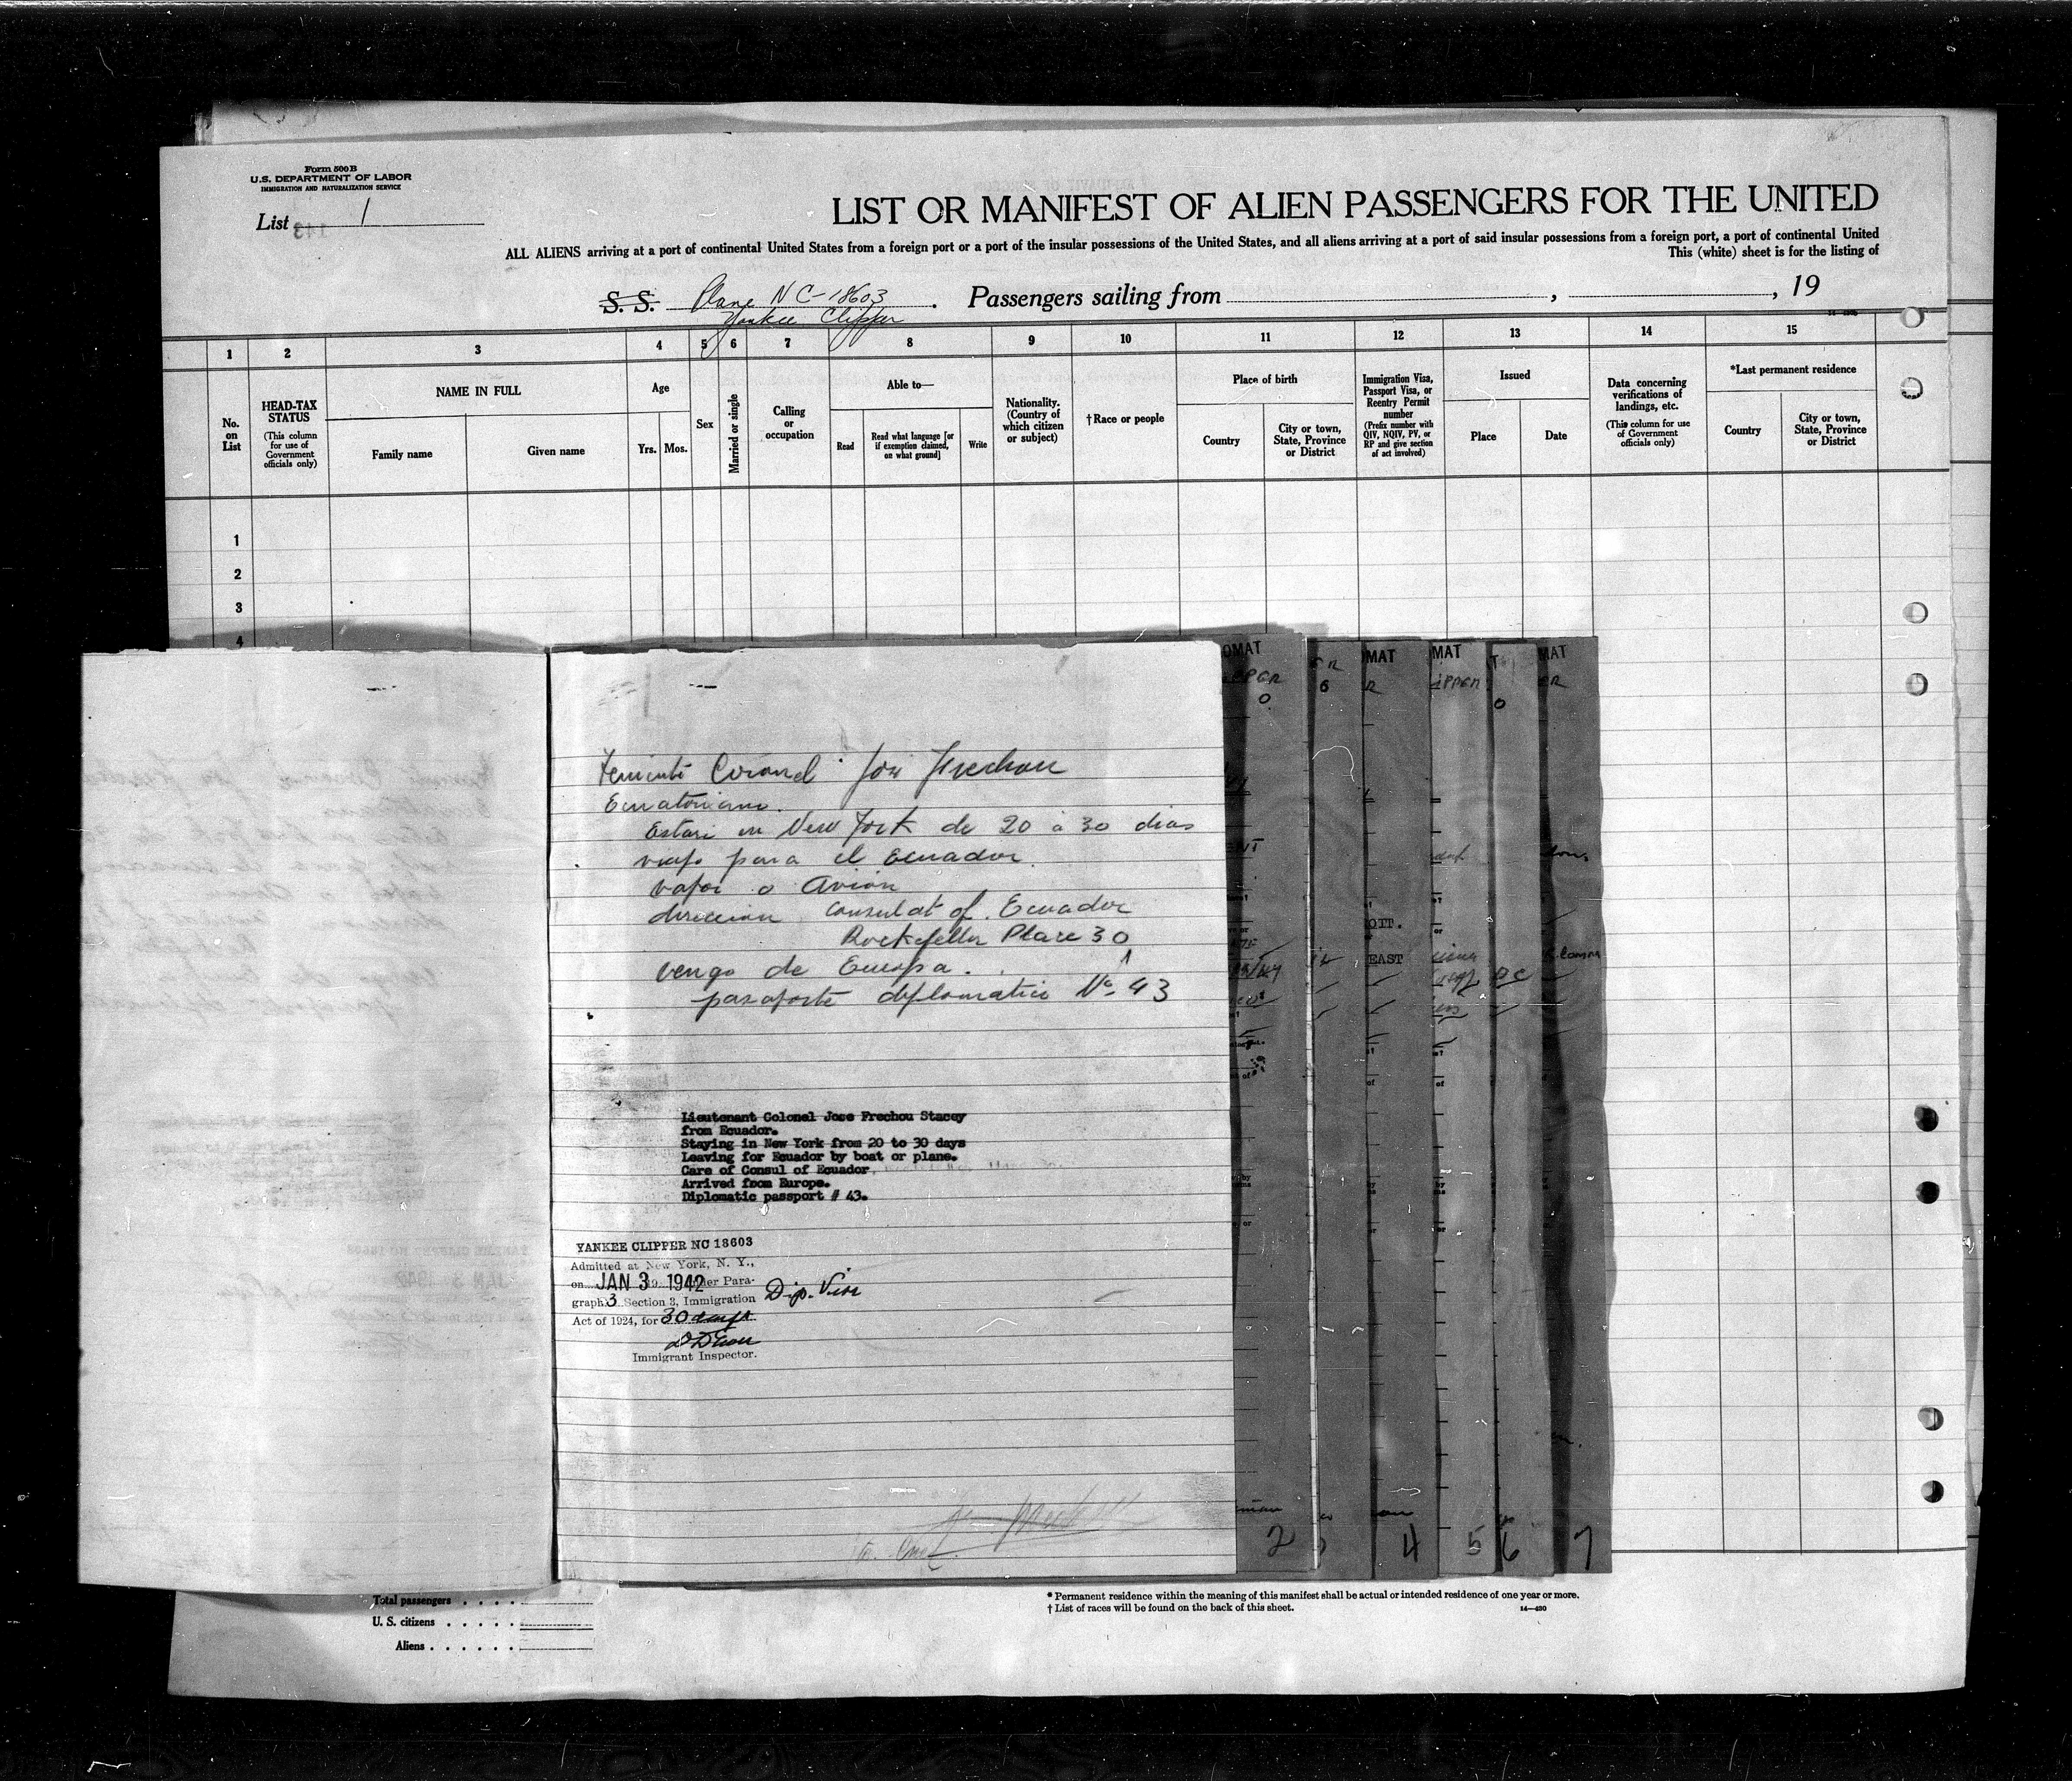 Form 500 B
U.S. DEPARTMENT OF LABOR
IMMIGRATION AND NATURALIZATION SERVICE
List 1
LIST OR MANIFEST OF ALIEN PASSENGERS FOR THE UNITED
ALL ALIENS arriving at a port of continental United States from a foreign port or a port of the insular possessions of the United States, and all aliens arriving at a port of said insular possessions from a foreign port, a port of continental United
This (white) sheet is for the listing of
S. S. Plane NC-18603 . Passengers sailing from , , 19
Yankee Clipper
1 2 3 4 5 6 7 8 9 10 11 12 13 14 15
No. on List
HEAD-TAX STATUS
(This column for use of Government officials only)
NAME IN FULL
Family name
Given name
Age
Yrs. Mos.
Sex
Married or single
Calling or occupation
Able to—
Read
Read what language [or if exemption claimed, on what ground]
Write
Nationality. (Country of which citizen or subject)
† Race or people
Place of birth
Country
City or town, State, Province or District
Immigration Visa, Passport Visa, or Reentry Permit number
(Prefix number with QIV, NQIV, PV, or RP and give section of act involved)
Issued
Place
Date
Data concerning verifications of landings, etc.
(This column for use of Government officials only)
*Last permanent residence
Country
City or town, State, Province or District
1
2
3
4
Teniente Coronel José Frechou
Ecuatoriano.
Estaré en New York de 20 a 30 dias
viajo para el Ecuador.
vapor o Avión
direccion Consulat of. Ecuador
Rockefeller Place 30
vengo de Europa.
pasaporte diplomatico No. 43
Lieutenant Colonel Jose Frechou Stacey
from Ecuador.
Staying in New York from 20 to 30 days
Leaving for Ecuador by boat or plane.
Care of Consul of Ecuador,
Arrived from Europe.
Diplomatic passport # 43.
YANKEE CLIPPER NC 18603
Admitted at New York, N. Y.,
on JAN 3 1942 under Para-
graph 3 Section 3, Immigration Dip. Visa
Act of 1924, for 30 days
Immigrant Inspector.
2 4 5 6 7
Total passengers
U. S. citizens
Aliens
* Permanent residence within the meaning of this manifest shall be actual or intended residence of one year or more.
† List of races will be found on the back of this sheet.
14—430